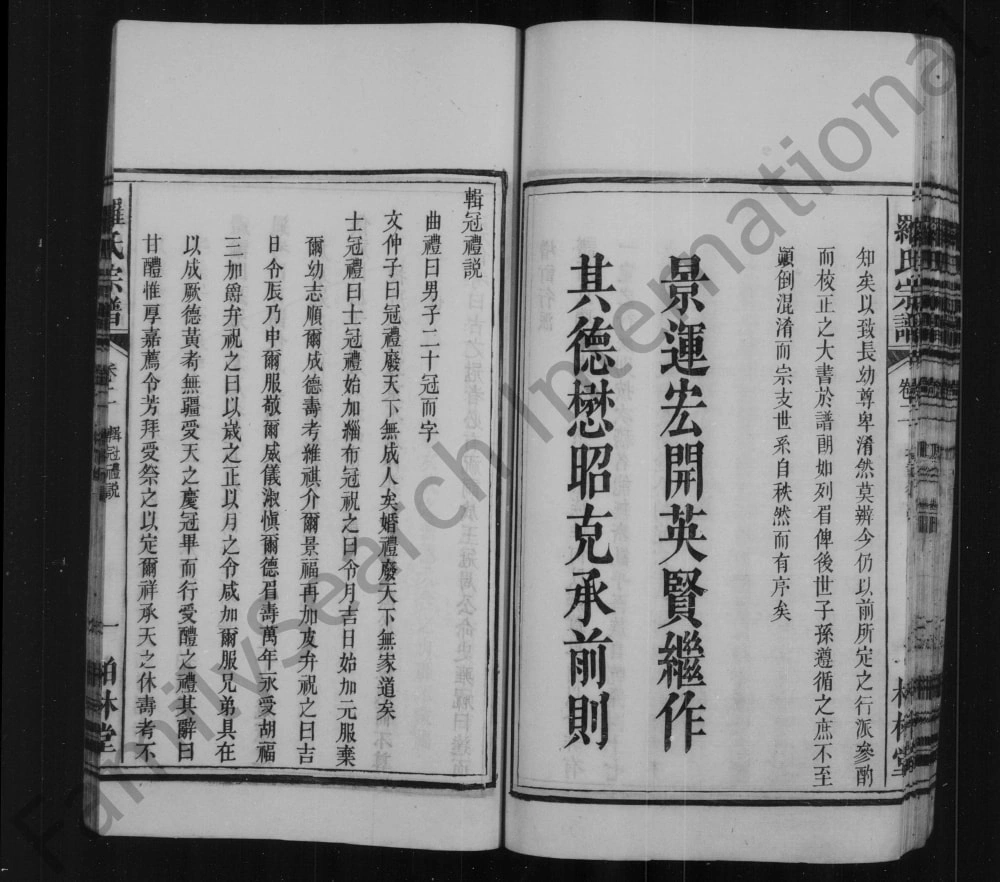 羅氏宗譜
卷二
知矣以致長幼尊卑淆然莫辨今仍以前所定之行派參酌
而校正之大書於譜朗如列眉俾後世子孫遵循之庶不至
顚倒混淆而宗支世系自秩然而有序矣
景運宏開英賢繼作
其德懋昭克承前則
輯冠禮説
曲禮曰男子二十冠而字
文仲子曰冠禮廢天下無成人矣婚禮廢天下無家道矣
士冠禮曰士冠禮始加緇布冠祝之曰令月吉日始加元服棄
爾幼志順爾成德壽考維祺介爾景福再加皮弁祝之曰吉
日令辰乃申爾服敬爾威儀淑愼爾德眉壽萬年永受胡福
三加爵弁祝之曰以歲之正以月之令咸加爾服兄弟具在
以成厥德黃耇無疆受天之慶冠畢而行受醴之禮其辭曰
甘醴惟厚嘉薦令芳拜受祭之以定爾祥承天之休壽考不
羅氏宗譜
卷二
輯冠禮説
一
柏林堂
FamilySearch International